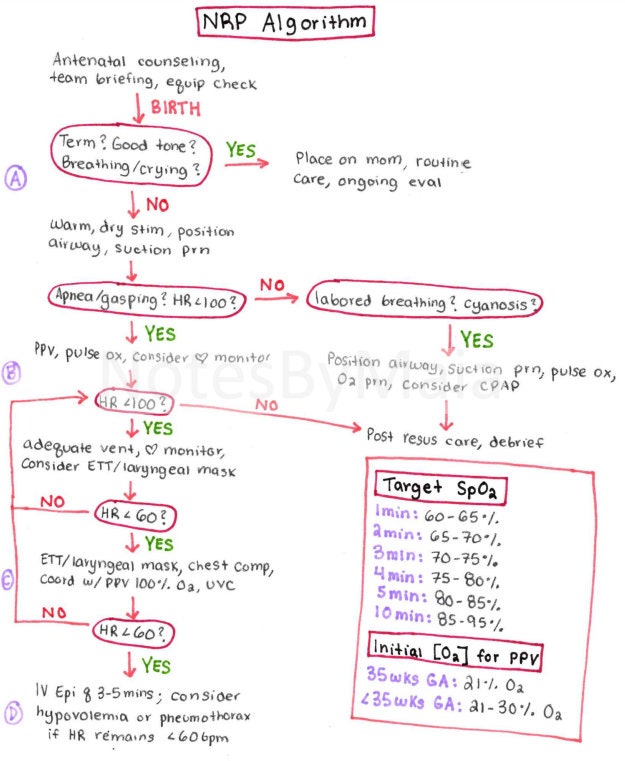 NRP Algorithm
Antenatal counseling,
team briefing, equip check
BIRTH
Term? Good tone?
Breathing/crying?
YES
Place on mom, routine
care, ongoing eval
A
NO
Warm, dry stim, position
airway, suction prn
Apnea/gasping? HR<100?
NO
labored breathing? cyanosis?
YES
YES
PPV, pulse ox, consider ♡ monitor
Position airway, suction prn, pulse ox,
O2 prn, consider CPAP
B
NotesByMaia
HR<100?
NO
YES
Post resus care, debrief
adequate vent, ♡ monitor,
consider ETT/laryngeal mask
NO
HR<60?
YES
ETT/laryngeal mask, chest comp,
coord w/ PPV 100% O2, UVC
C
NO
HR<60?
YES
IV Epi q 3-5mins; consider
hypovolemia or pneumothorax
if HR remains <60bpm
D
Target SpO2
1min: 60-65%
2min: 65-70%
3min: 70-75%
4min: 75-80%
5min: 80-85%
10min: 85-95%
Initial [O2] for PPV
35wks GA: 21% O2
<35wks GA: 21-30% O2